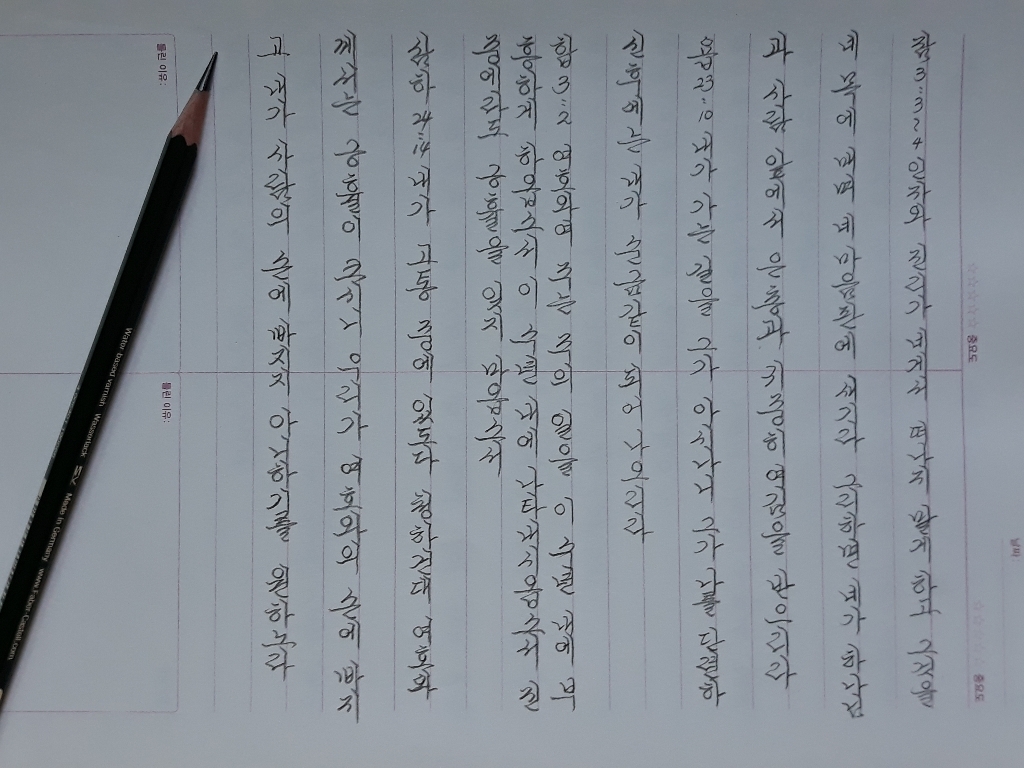 날짜:
☆☆☆☆☆ 중요도
☆☆☆☆☆ 중요도
잠3:3~4 인자와 진리가 네게서 떠나지 말게 하고 그것을
네 목에 매며 네 마음판에 새기라 그리하면 네가 하나님
과 사람 앞에서 은총과 귀중히 여김을 받으리라
욥23:10 내가 가는 길을 그가 아시나니 그가 나를 단련하
신후에는 내가 순금같이 되어 나오리라
합3:2 여호와여 주는 주의 일을 이 수년 내에 부
흥하게 하옵소서 이 수년 내에 나타내시옵소서 진
중에라도 긍휼을 잊지 마옵소서
삼하 24:14 내가 고통 중에 있도다 청하건대 여호와
께서는 긍휼이 크시니 우리가 여호와의 손에 빠지
고 내가 사람의 손에 빠지지 아니하기를 원하노라
틀린 이유:
틀린 이유:
Water based varnish Wasserlack Made in Germany www.Faber-Castell.com